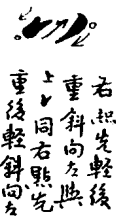 右點先輕後
重斜向左與
上同右點先
重後輕斜向左